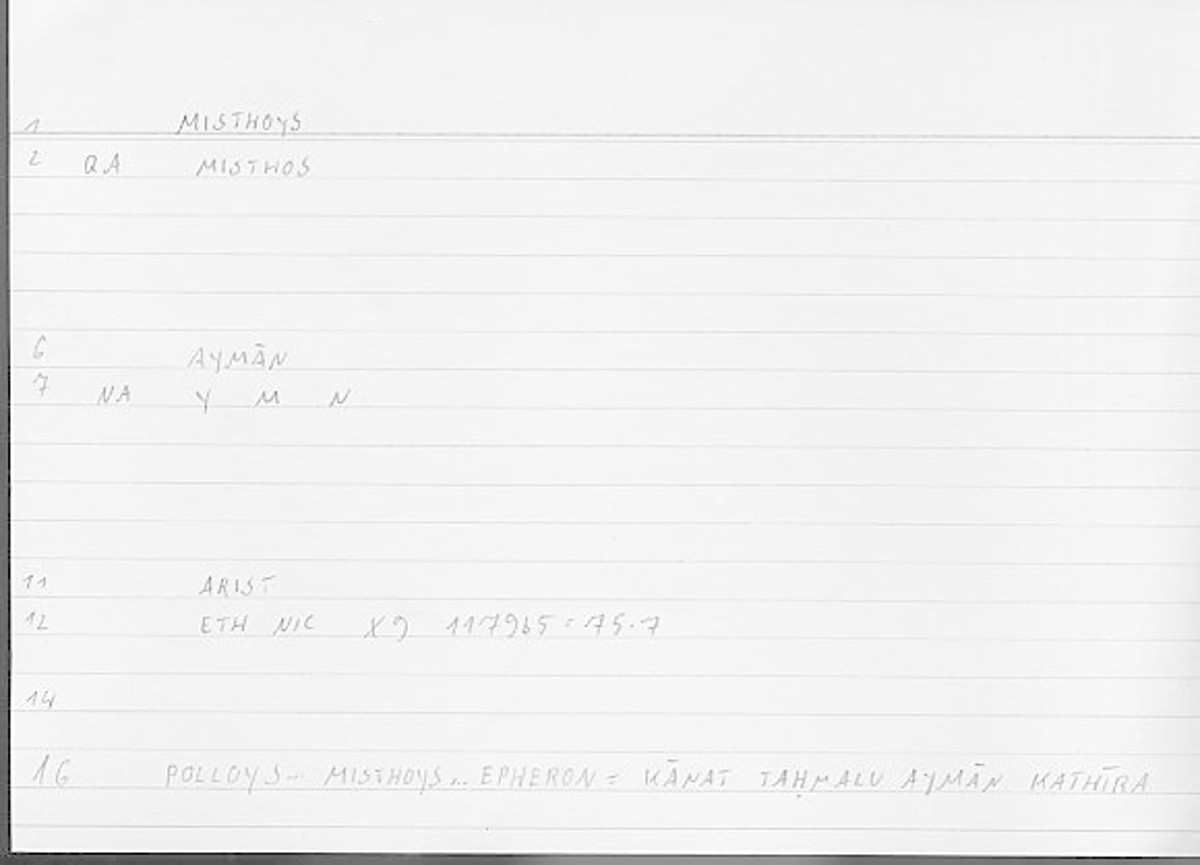 1 MISTHOYS
2 QA MISTHOS
6 AYMĀN
7 NA Y M N
11 ARIST
12 ETH NIC X9 1179b5 : 75.7
14
16 POLLOYS... MISTHOYS... EPHERON = KĀNAT TAḤMALU AYMĀN KATHĪRA